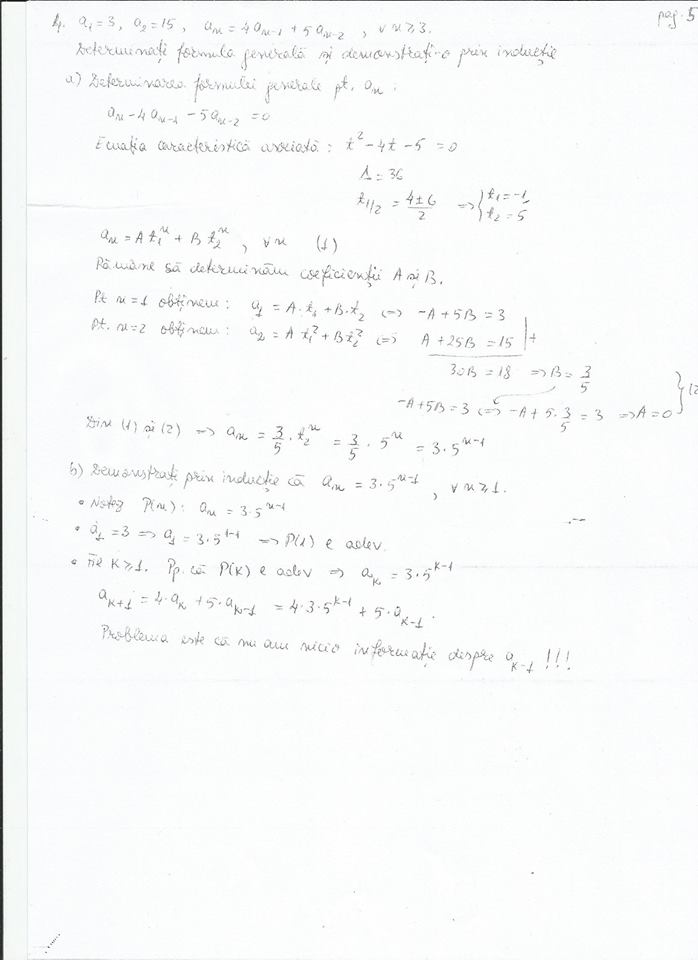 pag. 5
4. a₁=3, a₂=15, aₙ = 4aₙ₋₁ + 5aₙ₋₂, ∀ n ≥ 3.
Determinați formula generală și demonstrați-o prin inducție
a) Determinarea formulei generale pt. aₙ:
aₙ - 4aₙ₋₁ - 5aₙ₋₂ = 0
Ecuația caracteristică asociată: t² - 4t - 5 = 0
Δ = 36
t₁/₂ = (4±6)/2 ⇒ { t₁ = -1, t₂ = 5
aₙ = A t₁ⁿ + B t₂ⁿ, ∀ n (1)
Rămâne să determinăm coeficienții A și B.
Pt n=1 obținem: a₁ = A·t₁ + B·t₂ ⇔ -A + 5B = 3
Pt. n=2 obținem: a₂ = A t₁² + B t₂² ⇔ A + 25B = 15 | +
30B = 18 ⇒ B = 3/5
-A + 5B = 3 ⇔ -A + 5·3/5 = 3 ⇒ A = 0 } (2
Din (1) și (2) ⇒ aₙ = 3/5 · t₂ⁿ = 3/5 · 5ⁿ = 3·5ⁿ⁻¹
b) Demonstrați prin inducție că aₙ = 3·5ⁿ⁻¹, ∀ n ≥ 1.
• Notez P(n): aₙ = 3·5ⁿ⁻¹
• a₁ = 3 ⇒ a₁ = 3·5¹⁻¹ ⇒ P(1) e adev.
• Fie k ≥ 1. Pp. că P(k) e adev ⇒ aₖ = 3·5ᵏ⁻¹
aₖ₊₁ = 4·aₖ + 5·aₖ₋₁ = 4·3·5ᵏ⁻¹ + 5·aₖ₋₁.
Problema este că nu am nicio informație despre aₖ₋₁ !!!